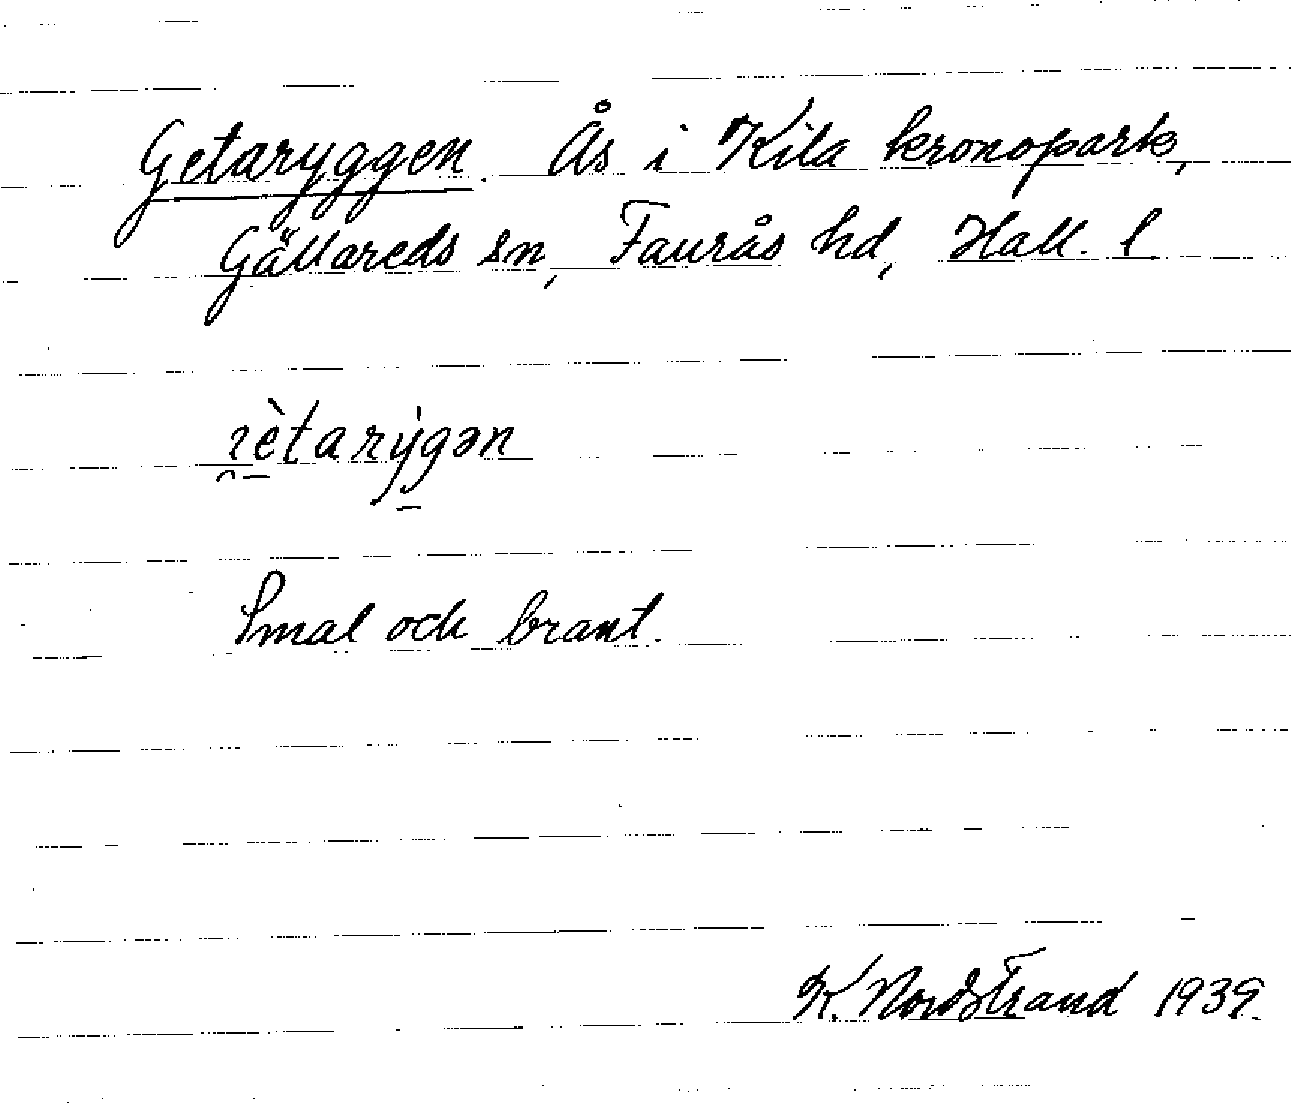 Getaryggen. Ås i Kila kronopark,
Gällareds sn, Faurås hd, Hall. l
Smal och brant.
K. Nordstrand 1939.